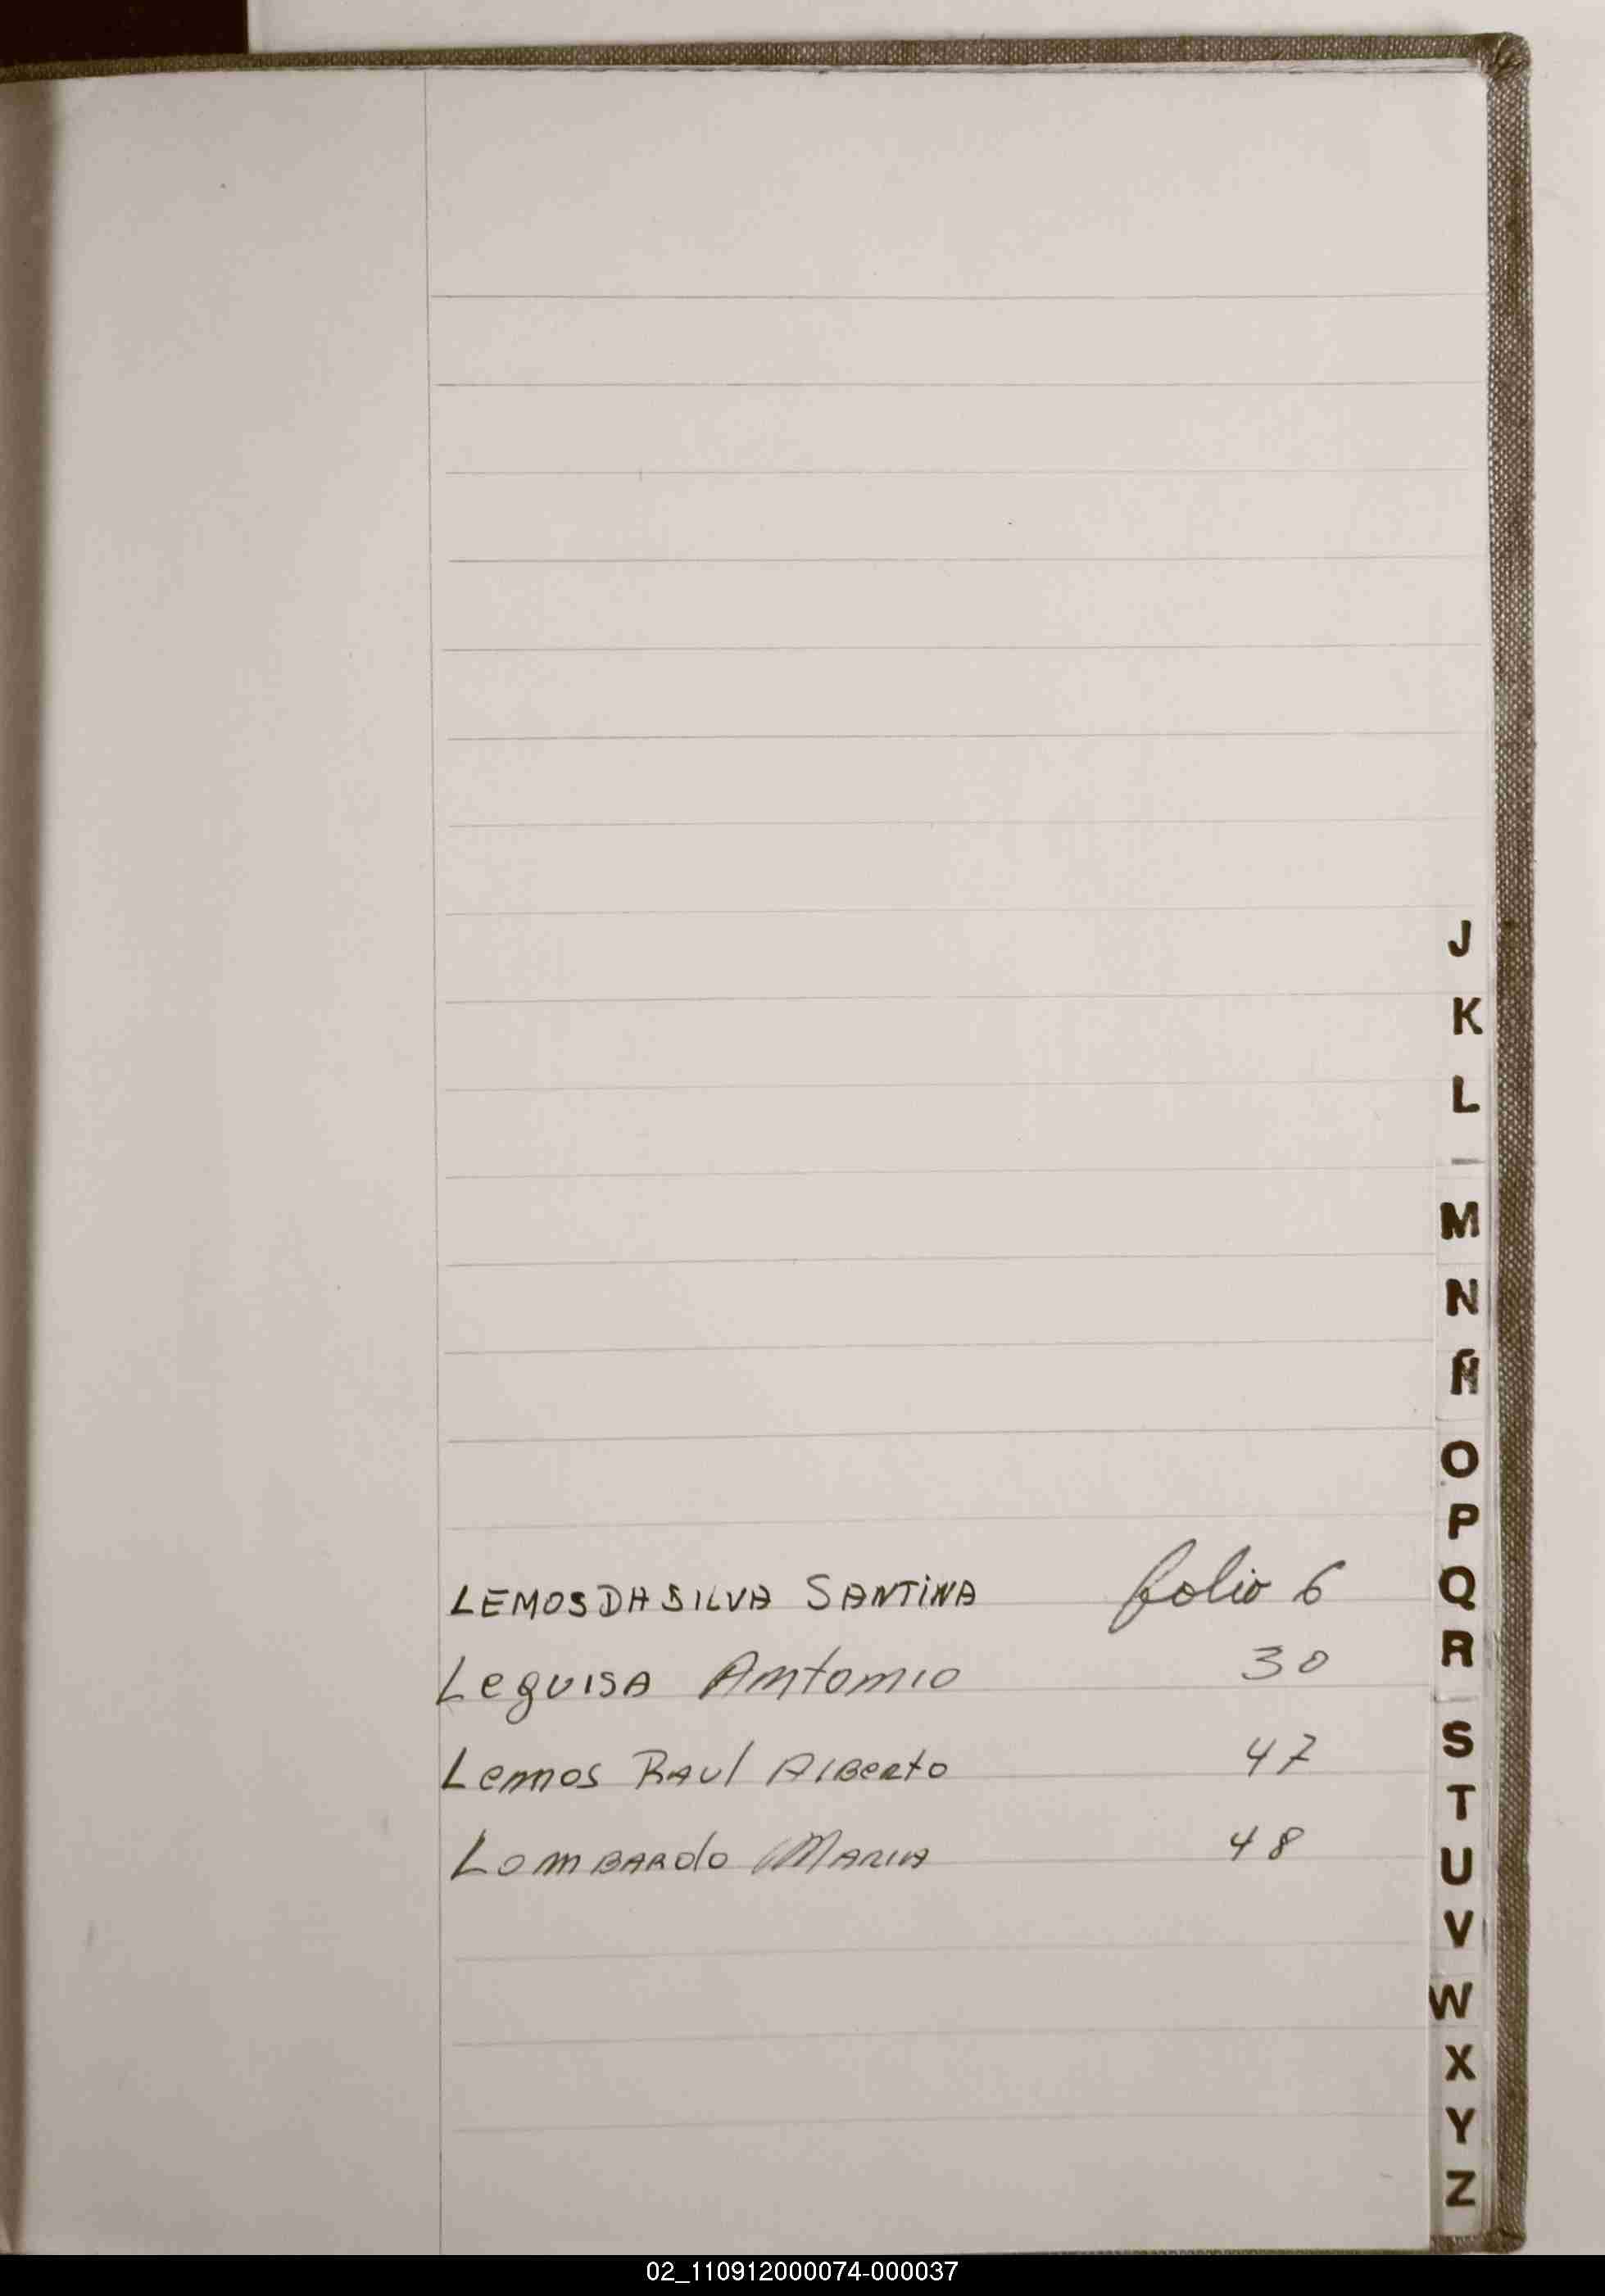 J
K
L
M
N
Ñ
O
P
LEMOS DA SILVA SANTINA folio 6
Q
R
Leguisa Antonio 30
S
Lemos Raul Alberto 47
T
Lombardo Maria 48
U
V
W
X
Y
Z
02_110912000074-000037